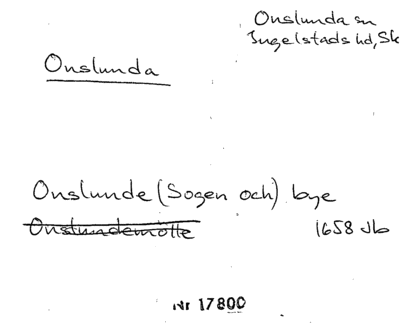 Onslunda sn
Ingelstads hd, Sk
Onslunda
Onslunde (Sogen och) bye
Onslundemölle
1658 Jb
Nr 17800